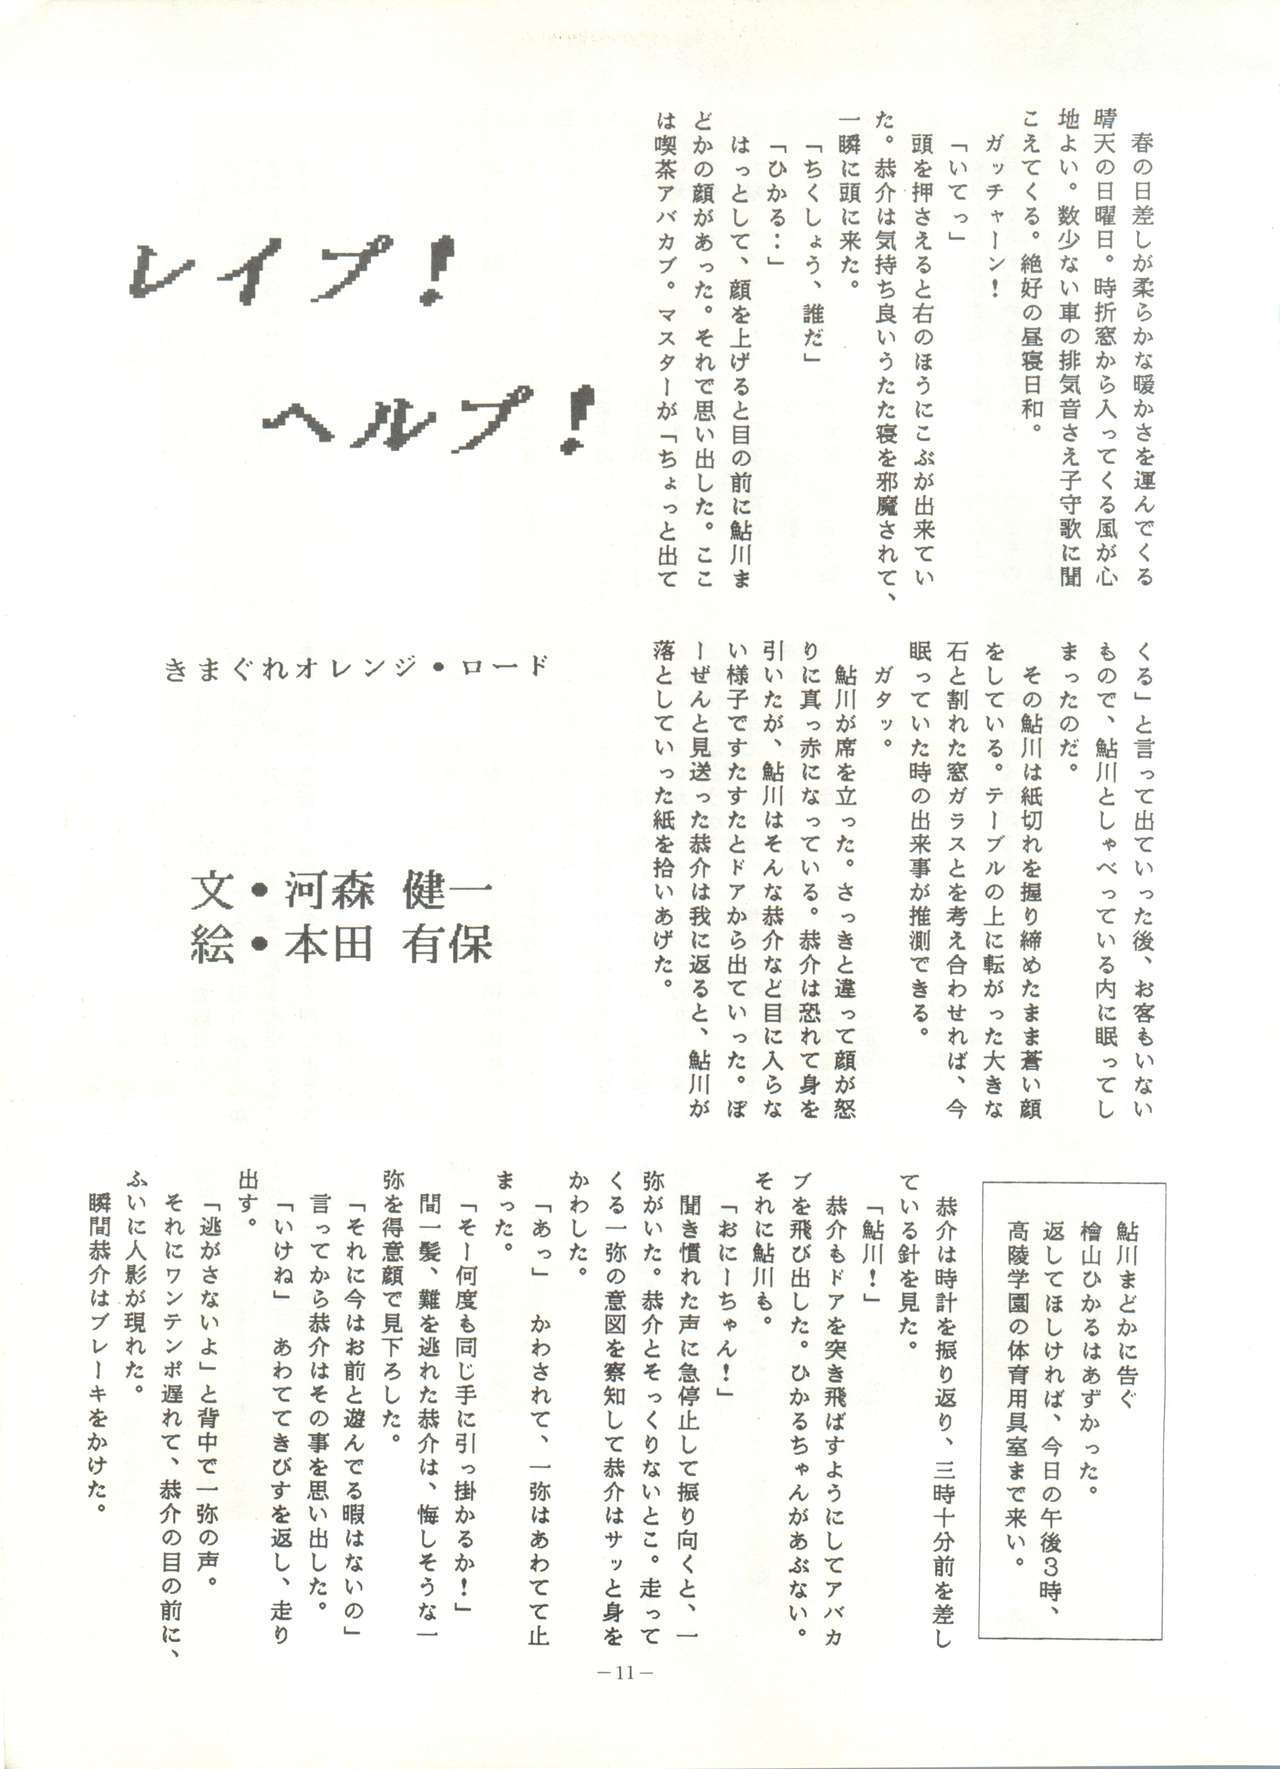 レイプ！
ヘルプ！
きまぐれオレンジ・ロード
文・河森 健一
絵・本田 有保
春の日差しが柔らかな暖かさを運んでくる
晴天の日曜日。時折窓から入ってくる風が心
地よい。数少ない車の排気音さえ子守歌に聞
こえてくる。絶好の昼寝日和。
ガッチャーン！
「いてっ」
頭を押さえると右のほうにこぶが出来てい
た。恭介は気持ち良いうたた寝を邪魔されて、
一瞬に頭に来た。
「ちくしょう、誰だ」
「ひかる‥」
はっとして、顔を上げると目の前に鮎川ま
どかの顔があった。それで思い出した。ここ
は喫茶アバカブ。マスターが「ちょっと出て
くる」と言って出ていった後、お客もいない
もので、鮎川としゃべっている内に眠ってし
まったのだ。
その鮎川は紙切れを握り締めたまま蒼い顔
をしている。テーブルの上に転がった大きな
石と割れた窓ガラスとを考え合わせれば、今
眠っていた時の出来事が推測できる。
ガタッ。
鮎川が席を立った。さっきと違って顔が怒
りに真っ赤になっている。恭介は恐れて身を
引いたが、鮎川はそんな恭介など目に入らな
い様子ですたすたとドアから出ていった。ぼ
ーぜんと見送った恭介は我に返ると、鮎川が
落としていった紙を拾いあげた。
鮎川まどかに告ぐ
檜山ひかるはあずかった。
返してほしければ、今日の午後３時、
高陵学園の体育用具室まで来い。
恭介は時計を振り返り、三時十分前を差し
ている針を見た。
「鮎川！」
恭介もドアを突き飛ばすようにしてアバカ
ブを飛び出した。ひかるちゃんがあぶない。
それに鮎川も。
「おにーちゃん！」
聞き慣れた声に急停止して振り向くと、一
弥がいた。恭介とそっくりないとこ。走って
くる一弥の意図を察知して恭介はサッと身を
かわした。
「あっ」　かわされて、一弥はあわてて止
まった。
「そー何度も同じ手に引っ掛かるか！」
間一髪、難を逃れた恭介は、悔しそうな一
弥を得意顔で見下ろした。
「それに今はお前と遊んでる暇はないの」
言ってから恭介はその事を思い出した。
「いけね」　あわててきびすを返し、走り
出す。
「逃がさないよ」と背中で一弥の声。
それにワンテンポ遅れて、恭介の目の前に、
ふいに人影が現れた。
瞬間恭介はブレーキをかけた。
－11－